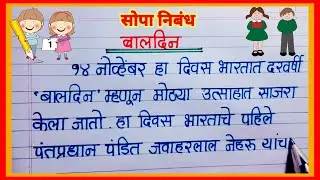 सोपा निबंध
बालदिन
१४ नोव्हेंबर हा दिवस भारतात दरवर्षी
'बालदिन' म्हणून मोठ्या उत्साहात साजरा
केला जातो. हा दिवस भारताचे पहिले
पंतप्रधान पंडित जवाहरलाल नेहरू यांच